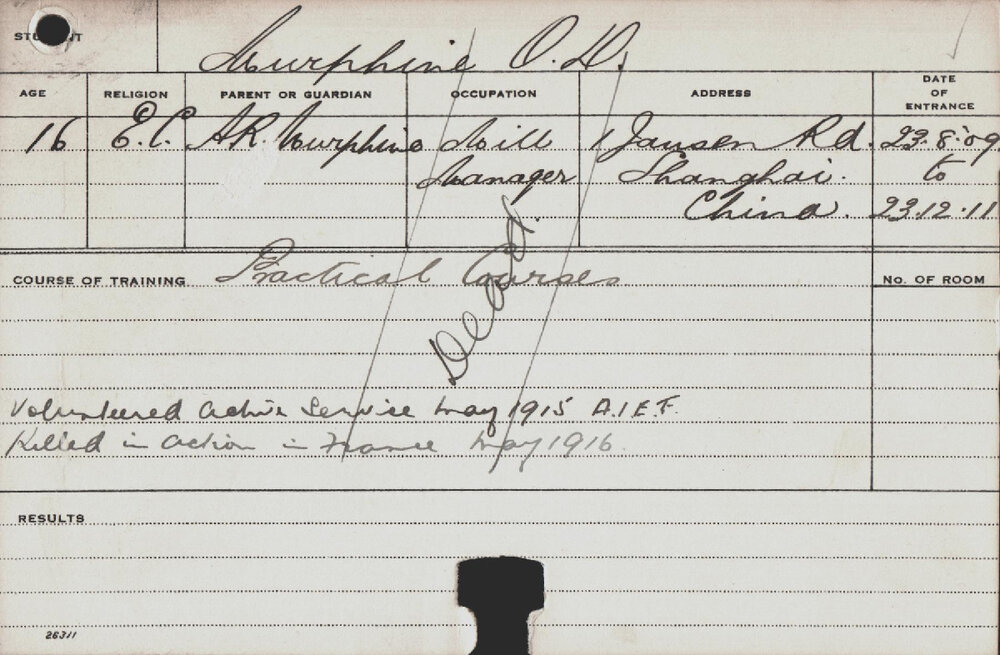 STUDENT Murphine O. H.
AGE RELIGION PARENT OR GUARDIAN OCCUPATION ADDRESS DATE OF ENTRANCE
16 E.C. A.R. Murphine Mill 1 Jansen Rd. 23.8.09
Manager Shanghai. to
China. 23.12.11
COURSE OF TRAINING Practical Courses No. OF ROOM
Dead.
Volunteered active Service May 1915 A.I.E.F.
Killed in action in France May 1916.
RESULTS
26311